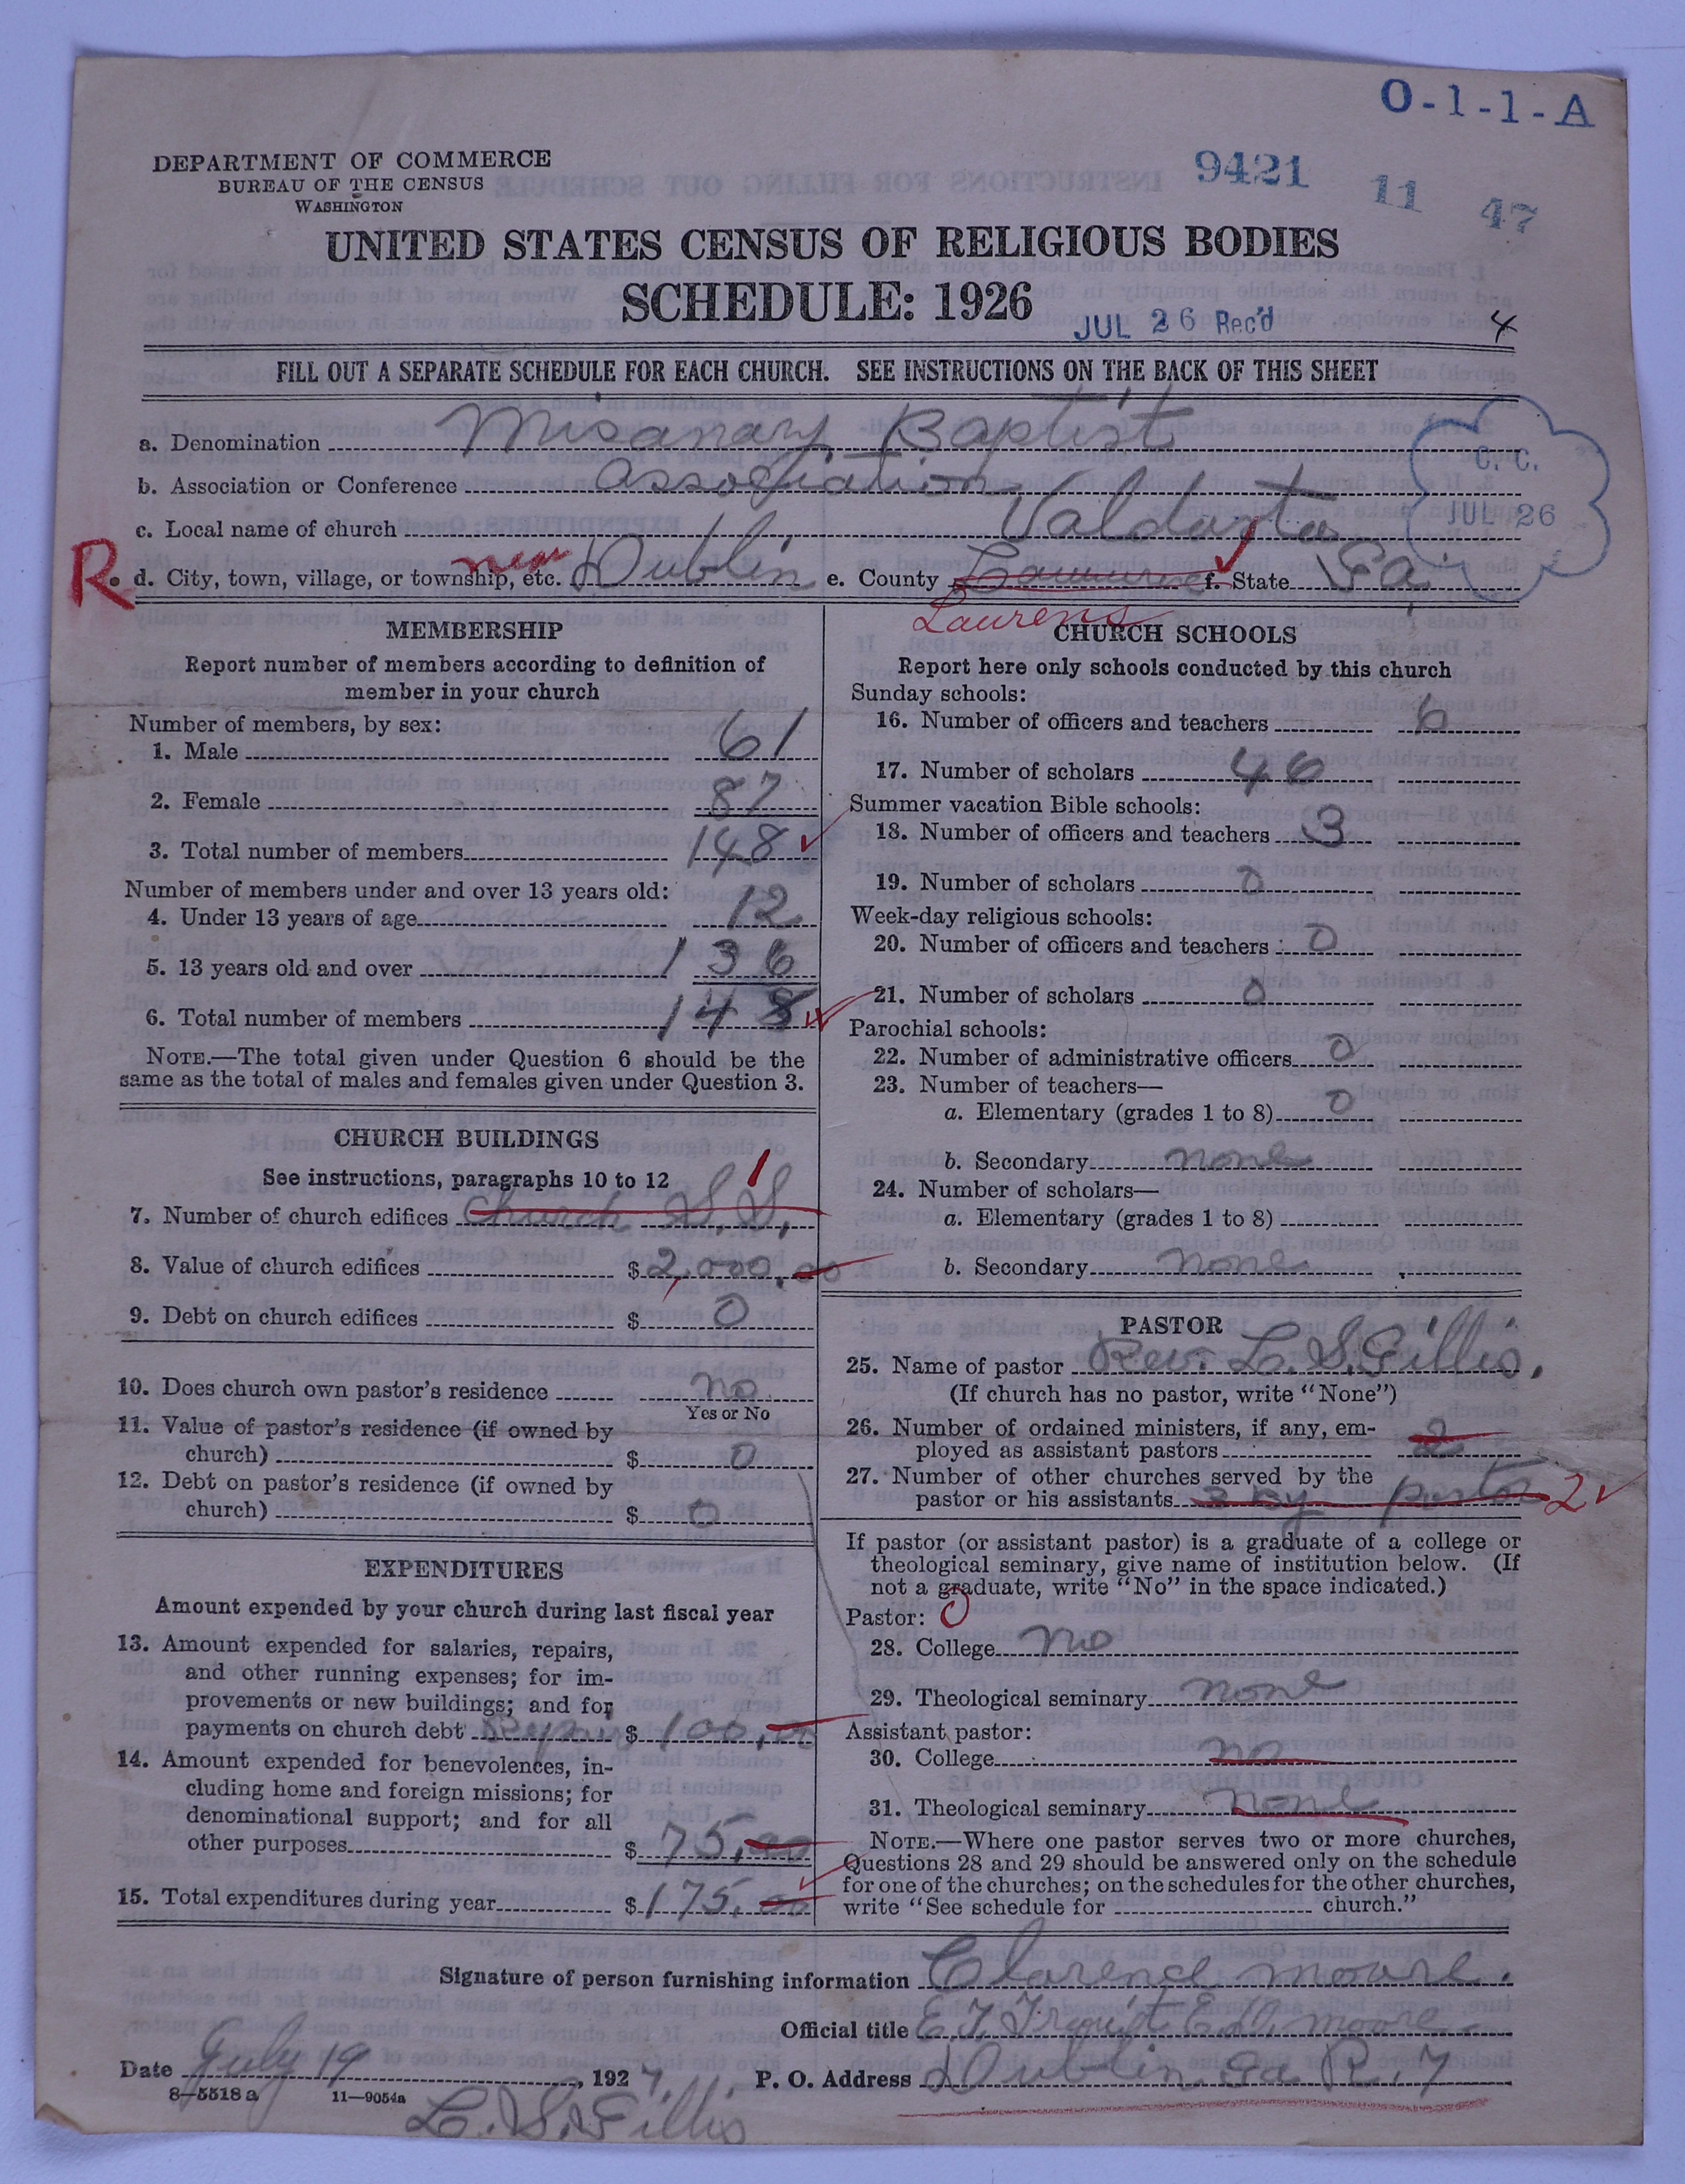 O-1-1-A
DEPARTMENT OF COMMERCE
BUREAU OF THE CENSUS
WASHINGTON
9421 11 47
UNITED STATES CENSUS OF RELIGIOUS BODIES
SCHEDULE: 1926
JUL 26 Rec'd 4
FILL OUT A SEPARATE SCHEDULE FOR EACH CHURCH. SEE INSTRUCTIONS ON THE BACK OF THIS SHEET
a. Denomination Misanary Baptist
b. Association or Conference association
C. C.
JUL 26
c. Local name of church Valdosta
R. d. City, town, village, or township, etc. near Dublin e. County f. State Ga
Laurens
MEMBERSHIP
Report number of members according to definition of
member in your church
Number of members, by sex:
1. Male 61
2. Female 87
3. Total number of members 148
Number of members under and over 13 years old:
4. Under 13 years of age 12
5. 13 years old and over 136
6. Total number of members 148
NOTE.—The total given under Question 6 should be the
same as the total of males and females given under Question 3.
CHURCH BUILDINGS
See instructions, paragraphs 10 to 12 1
7. Number of church edifices Church S.S.
8. Value of church edifices $ 2,000,00
9. Debt on church edifices $ 0
10. Does church own pastor's residence no
Yes or No
11. Value of pastor's residence (if owned by
church) $ 0
12. Debt on pastor's residence (if owned by
church) $ 0
EXPENDITURES
Amount expended by your church during last fiscal year
13. Amount expended for salaries, repairs,
and other running expenses; for im-
provements or new buildings; and for
payments on church debt Repair $ 100,00
14. Amount expended for benevolences, in-
cluding home and foreign missions; for
denominational support; and for all
other purposes $ 75,00
15. Total expenditures during year $ 175,00
CHURCH SCHOOLS
Report here only schools conducted by this church
Sunday schools:
16. Number of officers and teachers 6
17. Number of scholars 46
Summer vacation Bible schools:
18. Number of officers and teachers 3
19. Number of scholars 0
Week-day religious schools:
20. Number of officers and teachers 0
21. Number of scholars 0
Parochial schools:
22. Number of administrative officers 0
23. Number of teachers—
a. Elementary (grades 1 to 8) 0
b. Secondary none
24. Number of scholars—
a. Elementary (grades 1 to 8)
b. Secondary none
PASTOR
25. Name of pastor Rev. L. S. Gillis.
(If church has no pastor, write "None")
26. Number of ordained ministers, if any, em-
ployed as assistant pastors 2
27. Number of other churches served by the
pastor or his assistants 3 by pastor 2
If pastor (or assistant pastor) is a graduate of a college or
theological seminary, give name of institution below. (If
not a graduate, write "No" in the space indicated.)
Pastor: 0
28. College no
29. Theological seminary none
Assistant pastor:
30. College no
31. Theological seminary none
NOTE.—Where one pastor serves two or more churches,
Questions 28 and 29 should be answered only on the schedule
for one of the churches; on the schedules for the other churches,
write "See schedule for church."
Signature of person furnishing information Clarence Moore.
Official title moore
Date July 19, 1927. P. O. Address Dublin Ga R. 7
8—5518 a 11—9054a
L. S. Gillis